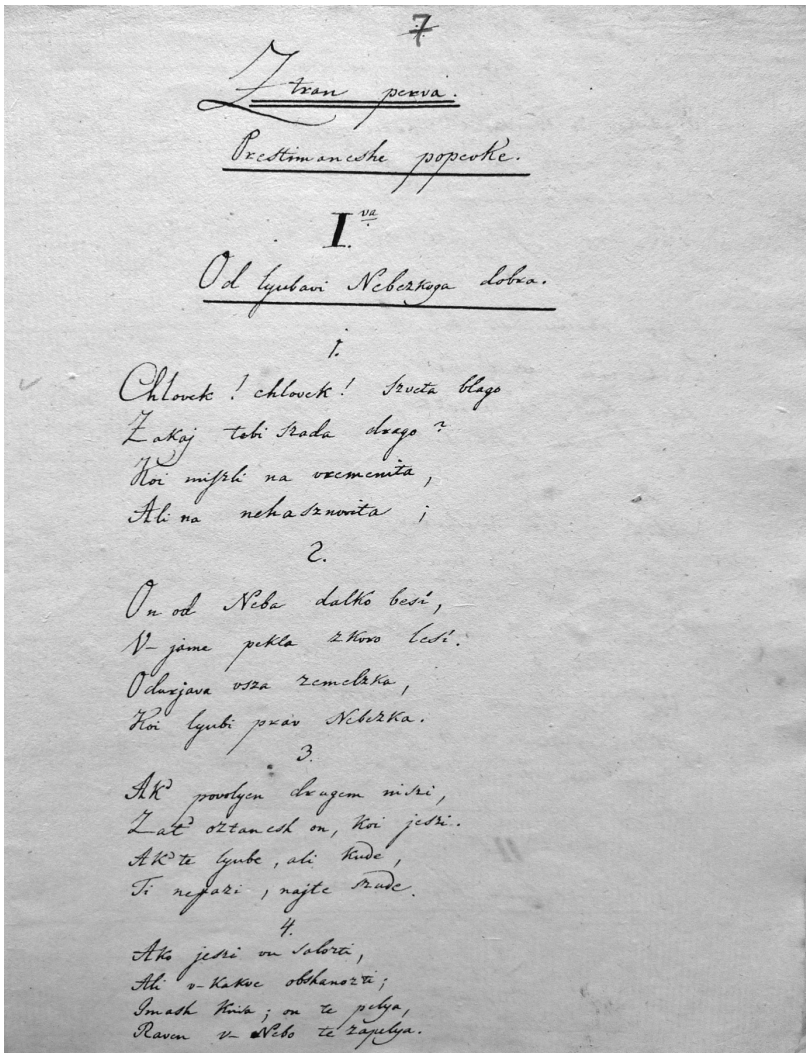 7
Ztran perva.
Prestimaneshe popevke.
I.va
Od lyubavi Nebezkoga dobra.
1.
Chlovek! chlovek! szveta blago
Zakaj tebi szada drago?
Koi miszli na vremenita,
Ali na nehasznovita;
2.
On od Neba dalko besi,
V-jame pekla zkoro lesi.
Odurjava vsza zemelzka,
Koi lyubi prav Nebezka.
3.
Ak' povolyen drugem niszi,
Zat' oztanesh on, koi jeszi.
Ak' te lyube, ali kude,
Ti nepazi, najte szude.
4.
Ako jeszi vu salozti,
Ali v-kakve obshanozti;
Imash Krisa; on te pelya,
Raven v- Nebo te zapelya.